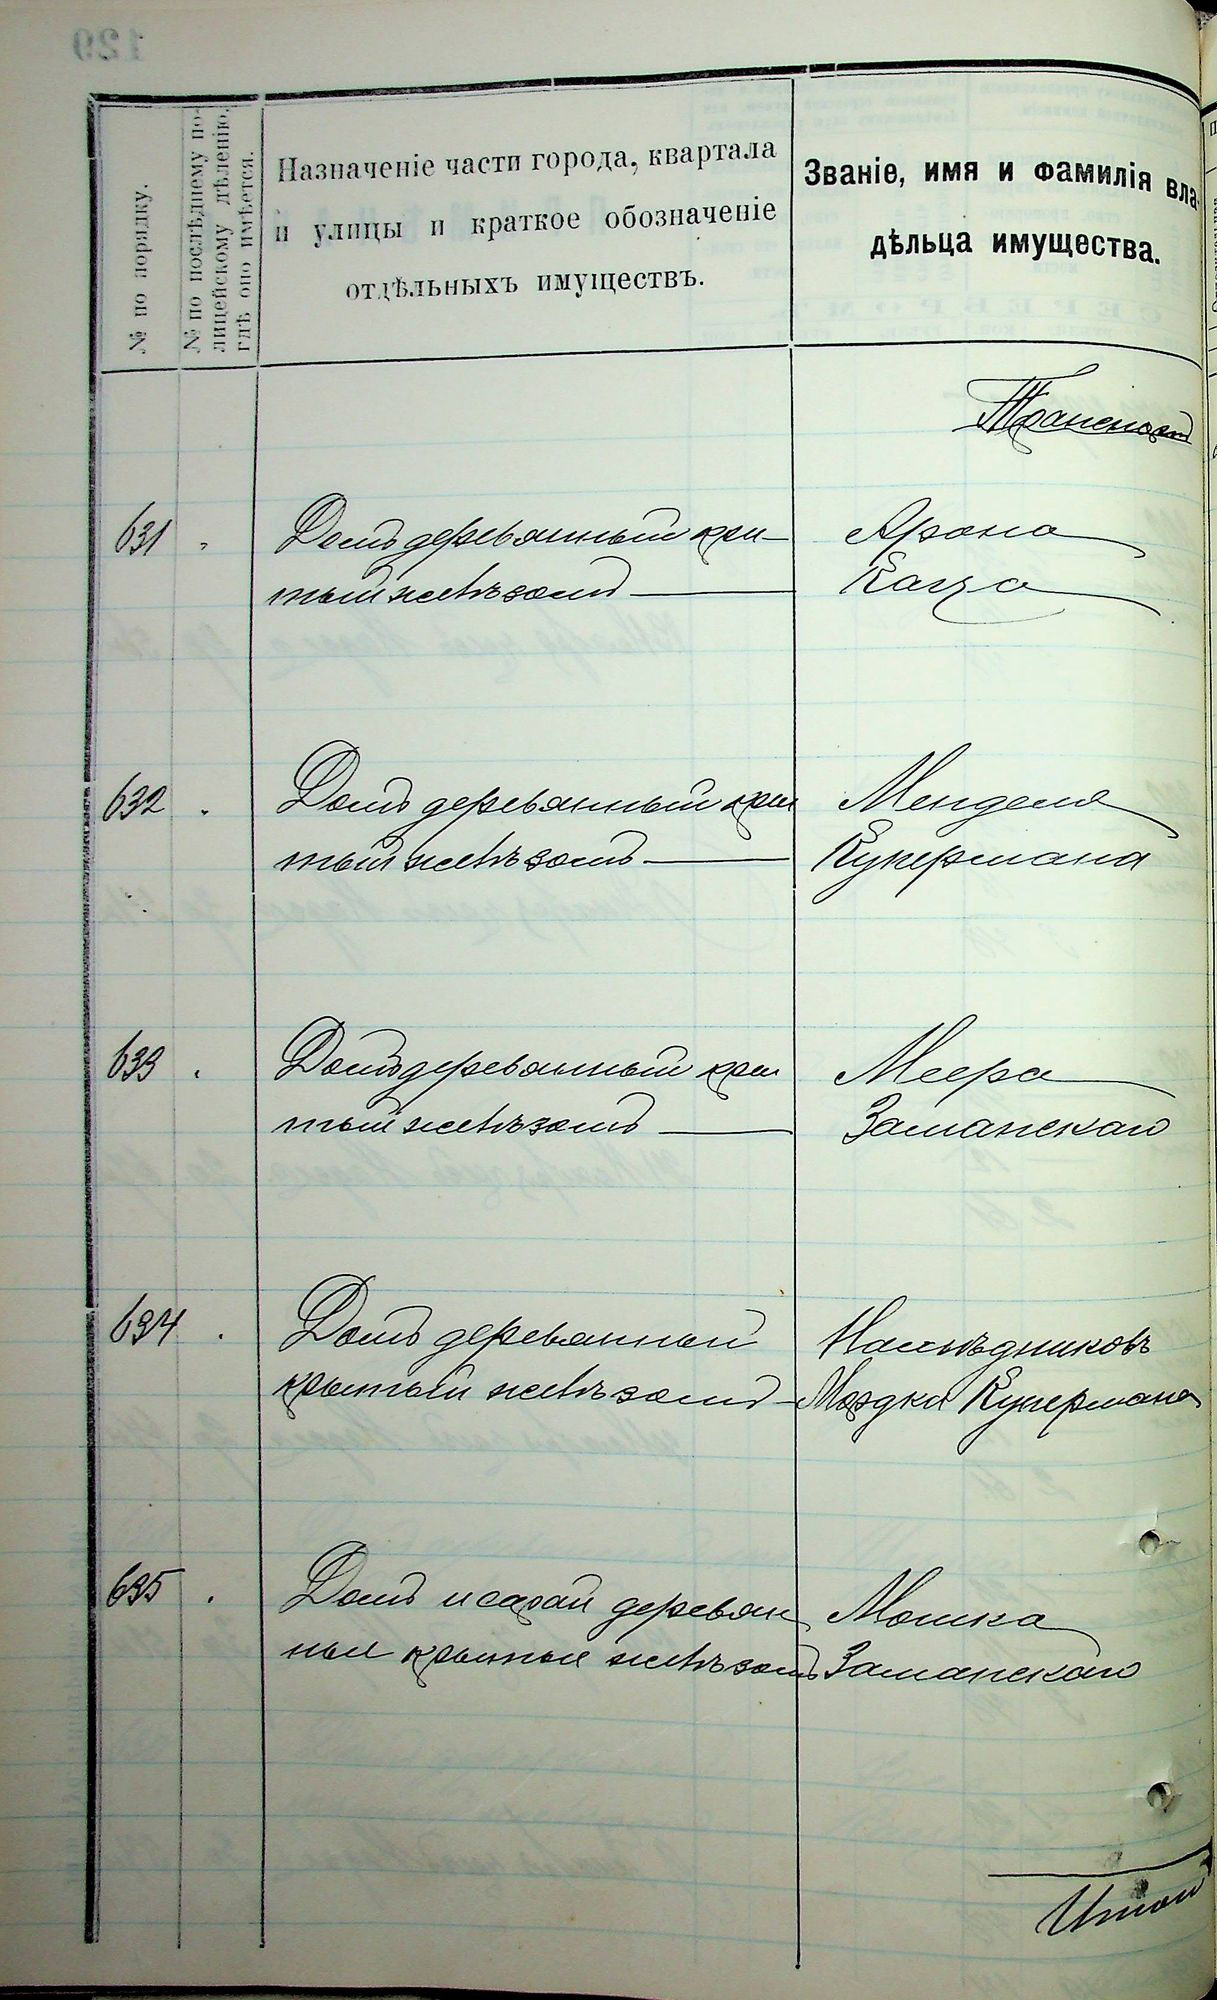 № по порядку.
№ по послѣднему по-
лицейскому дѣленію,
гдѣ оно имѣется.
Назначеніе части города, квартала
и улицы и краткое обозначеніе
отдѣльныхъ имуществъ.
Званіе, имя и фамилія вла-
дѣльца имущества.
Транспортъ
631 " Домъ деревянный кры-
тый желѣзомъ —
Арона
Каца
632 " Домъ деревянный кры
тый желѣзомъ —
Менделя
Купермана
633 " Домъ деревянный кры
тый желѣзомъ —
Меера
Заманскаго
634 " Домъ деревянный
крытый желѣзомъ —
Наслѣдниковъ
Мордки Купермана
635 " Домъ и сарай деревян
ные крытые желѣзомъ
Мошка
Заманскаго
Итого